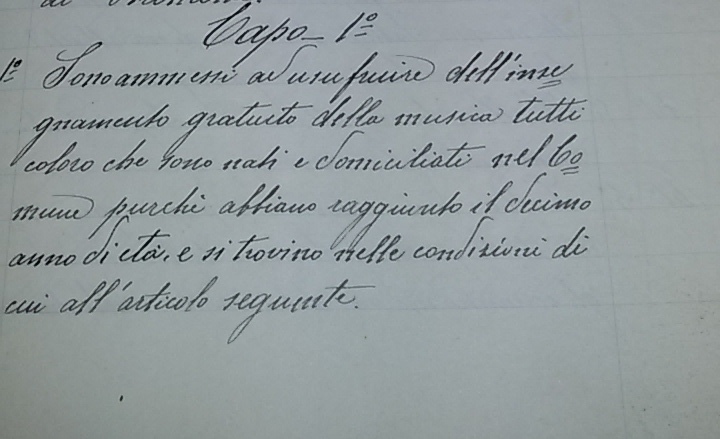 Capo 1º
1º Sono ammessi ad usufruire dell'inse=
gnamento gratuito della musica tutti
coloro che sono nati e domiciliati nel Co=
mune purchè abbiano raggiunto il decimo
anno di età, e si trovino nelle condizioni di
cui all'articolo seguente.